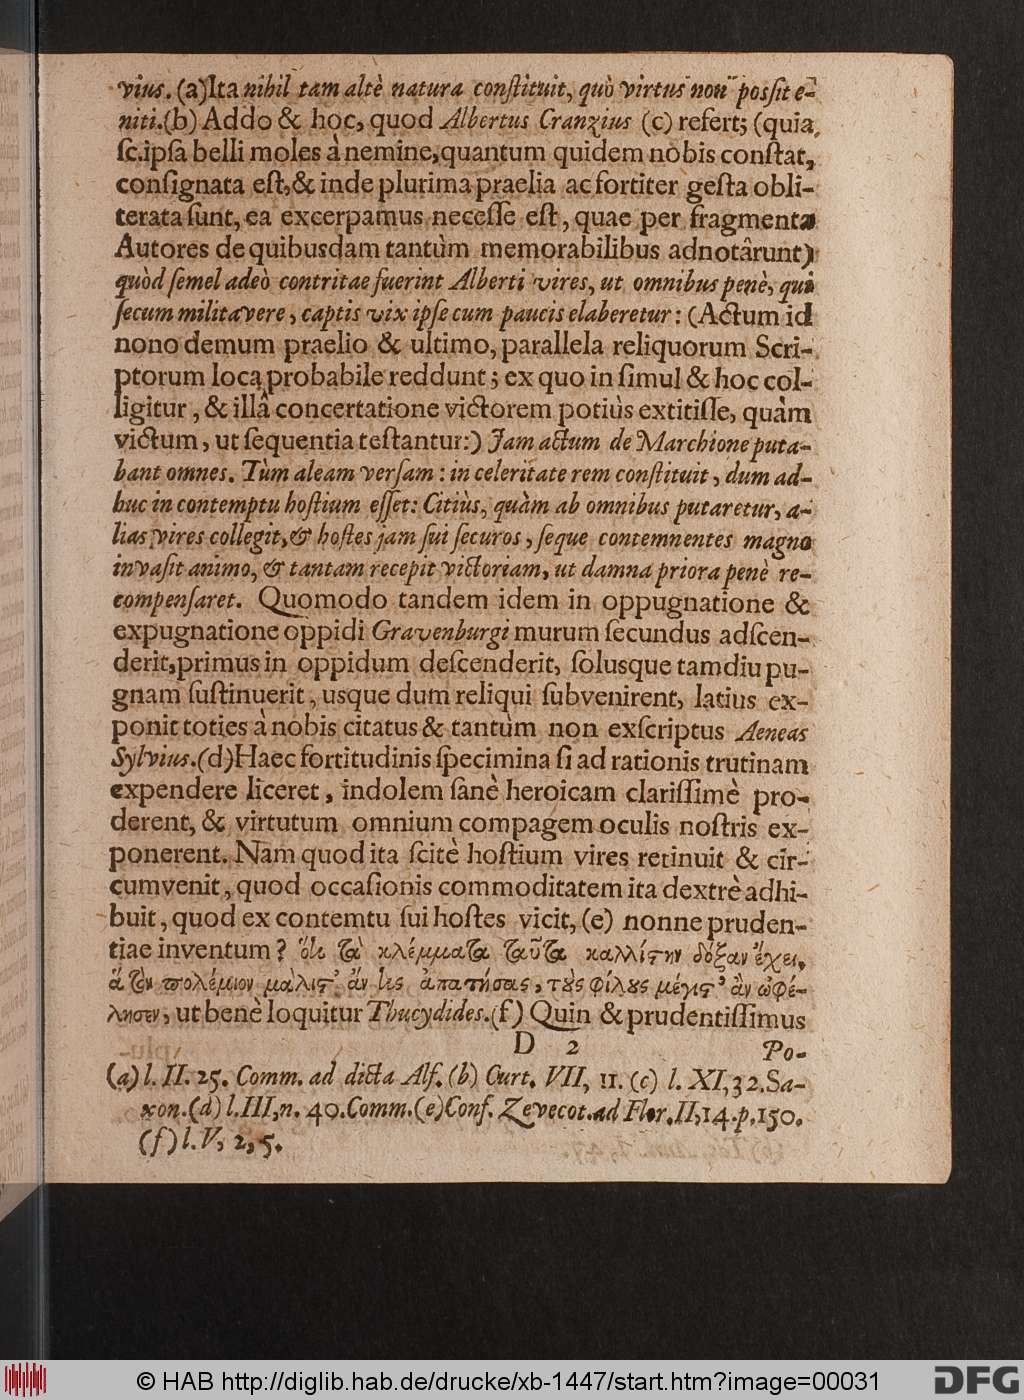 vius. (a) Ita nihil tam altè natura conſtituit, quò virtus non poſſit e-
niti.(b) Addo & hoc, quod Albertus Cranzius (c) refert; (quia,
ſc. ipſa belli moles à nemine, quantum quidem nobis conſtat,
conſignata eſt, & inde plurima praelia ac fortiter geſta obli-
terata ſunt, ea excerpamus neceſſe eſt, quae per fragmenta
Autores de quibusdam tantùm memorabilibus adnotârunt)
quòd ſemel adeò contritae fuerint Alberti vires, ut omnibus penè, qui
ſecum militavere, captis vix ipſe cum paucis elaberetur: (Actum id
nono demum praelio & ultimo, parallela reliquorum Scri-
ptorum loca probabile reddunt; ex quo in ſimul & hoc col-
ligitur, & illâ concertatione victorem potiùs extitiſſe, quàm
victum, ut ſequentia teſtantur:) Jam actum de Marchione puta-
bant omnes. Tùm aleam verſam: in celeritate rem conſtituit, dum ad-
huc in contemptu hoſtium eſſet: Citiùs, quàm ab omnibus putaretur, a-
lias vires collegit, & hoſtes jam ſui ſecuros, ſeque contemnentes magno
invaſit animo, & tantam recepit victoriam, ut damna priora penè re-
compenſaret. Quomodo tandem idem in oppugnatione &
expugnatione oppidi Gravenburgi murum ſecundus adſcen-
derit, primus in oppidum deſcenderit, ſolusque tamdiu pu-
gnam ſuſtinuerit, usque dum reliqui ſubvenirent, latius ex-
ponit toties à nobis citatus & tantùm non exſcriptus Aeneas
Sylvius.(d) Haec fortitudinis ſpecimina ſi ad rationis trutinam
expendere liceret, indolem ſanè heroicam clariſſimè pro-
derent, & virtutum omnium compagem oculis noſtris ex-
ponerent. Nam quod ita ſcitè hoſtium vires retinuit & cir-
cumvenit, quod occaſionis commoditatem ita dextrè adhi-
buit, quod ex contemtu ſui hoſtes vicit, (e) nonne pruden-
tiae inventum? ὅτι τὰ κλέμματα ταῦτα καλλίςην δόξαν ἔχει,
ἃ τὸν πολέμιον μάλιϛ' ἄν τις ἀπατήσας, τοὺς φίλους μέγιϛ' ἂν ὠφέ-
λησεν, ut benè loquitur Thucydides.(f) Quin & prudentiſſimus
D 2
Po-
(a) l. II. 25. Comm. ad dicta Alf. (b) Curt. VII, 11. (c) l. XI, 32. Sa-
xon. (d) l. III, n. 40. Comm. (e) Conf. Zevecot. ad Flor. II, 14. p. 150.
(f) l. V, 2, 5.
© HAB http://diglib.hab.de/drucke/xb-1447/start.htm?image=00031
DFG